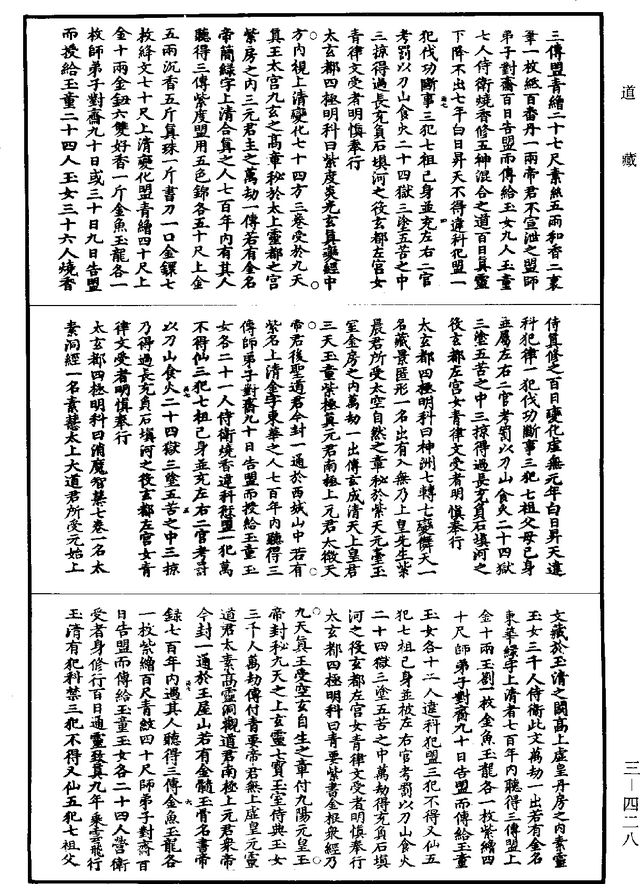 道藏
三傳盟青繒二十七尺素絲五兩和香二裹
筆一枚紙百番丹一兩帝君不宣泄之盟師
弟子對齋百日告盟而傳給玉女九人玉童
七人侍衛燒香修五神混合之道百日真靈
下降不出七年白日昇天不得違科犯盟一
犯伐功斷事三犯七祖己身並充左右二官
考罰以刀山食火二十四獄三塗五苦之中
三掠得過長充負石填河之役玄都左宮女
青律文受者明慎奉行
太玄都四極明科曰紫度炎光玄真變經中
方内視上清變化七十四方三卷受於九天
真王太宮九玄之高章秘於太上靈都之宮
紫房之内三元君主之萬劫一傳若有金名
帝簡綠字上清合真之人七百年内有其人
聽得三傳紫度盟用五色錦各五十尺上金
五兩沉香五斤真珠一斤書刀一口金鐶七
枚絳文七十尺上清變化盟青繒四十尺上
金十兩金鈕六雙好香一斤金魚玉龍各一
枚師弟子對齋九十日或三十日九日告盟
而授給玉童二十四人玉女三十六人燒香
侍真修之百日變化虛無元年白日昇天違
科犯律一犯伐功斷事三犯七祖父母己身
並屬左右二官考罰以刀山食火二十四獄
三塗五苦之中三掠得過長充負石填河之
役玄都左宮女青律文受者明慎奉行
太玄都四極明科曰神洲七轉七變儛天一
名藏景匿形一名出有入無乃上皇先生紫
晨君所受太空自然之章秘於紫天元臺玉
室金房之内萬劫一出傳玄成清天上皇君
三天玉童紫極真元君南極上元君太微天
帝君後聖道君今封一通於西城山中若有
紫名上清金字東華之人七百年内聽得三
傳師弟子對齋九十日告盟而授給玉童玉
女各二十一人侍衛燒香違科愆盟一犯萬
不得仙三犯七祖己身並充左右二官考討
以刀山食火二十四獄三塗五苦之中三掠
乃得過長充負石填河之役玄都左宮女青
律文受者明慎奉行
太玄都四極明科曰消魔智慧七卷一名太
素洞經一名素慧太上大道君所受元始上
文藏於玉清之闕高上虛皇丹房之内素靈
玉女三千人侍衛此文萬劫一出若有金名
東華綠字上清者七百年内聽得三傳盟上
金十兩玉劄一枚金魚玉龍各一枚紫繒四
十尺師弟子對齋九十日告盟而傳給玉童
玉女各十二人違科犯盟三犯不得又仙五
犯七祖己身並被左右官考罰以刀山食火
二十四獄三塗五苦之中萬劫得充負石填
河之役玄都左宮女青律文受者明慎奉行
太玄都四極明科曰青要紫書金根衆經乃
九天真王受空玄自生之章付九陽元皇玉
帝封秘九天之上玄靈七寶玉室侍典玉女
三千人萬劫傳付青要帝君無上虛皇元靈
道君太素高靈洞觀道君南極上元君衆帝
今封一通於王屋山若有金髓玉骨名書帝
錄七百年内遇其人聽得三傳金魚玉龍各
一枚紫繒百尺青紋四十尺師弟子對齋百
日告盟而傳給玉童玉女各二十四人營衛
受者身修行百日通靈致真九年乘雲飛行
玉清有犯科禁三犯不得又仙五犯七祖父
三—四二八